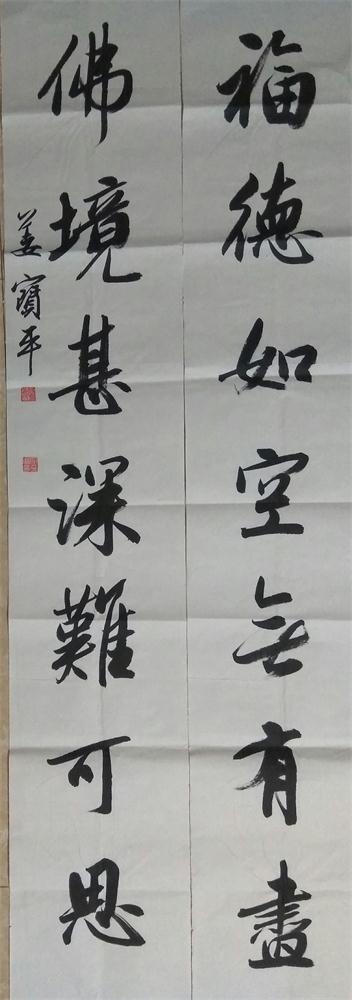 福德如空无有盡
佛境甚深難可思
姜寳平